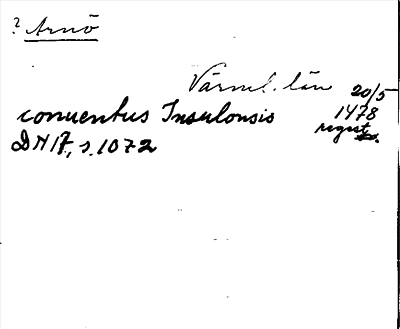 ? Arnö
Värml. län 20/5
conventus Insulonsis 1478
regest
DN 17, s. 1072